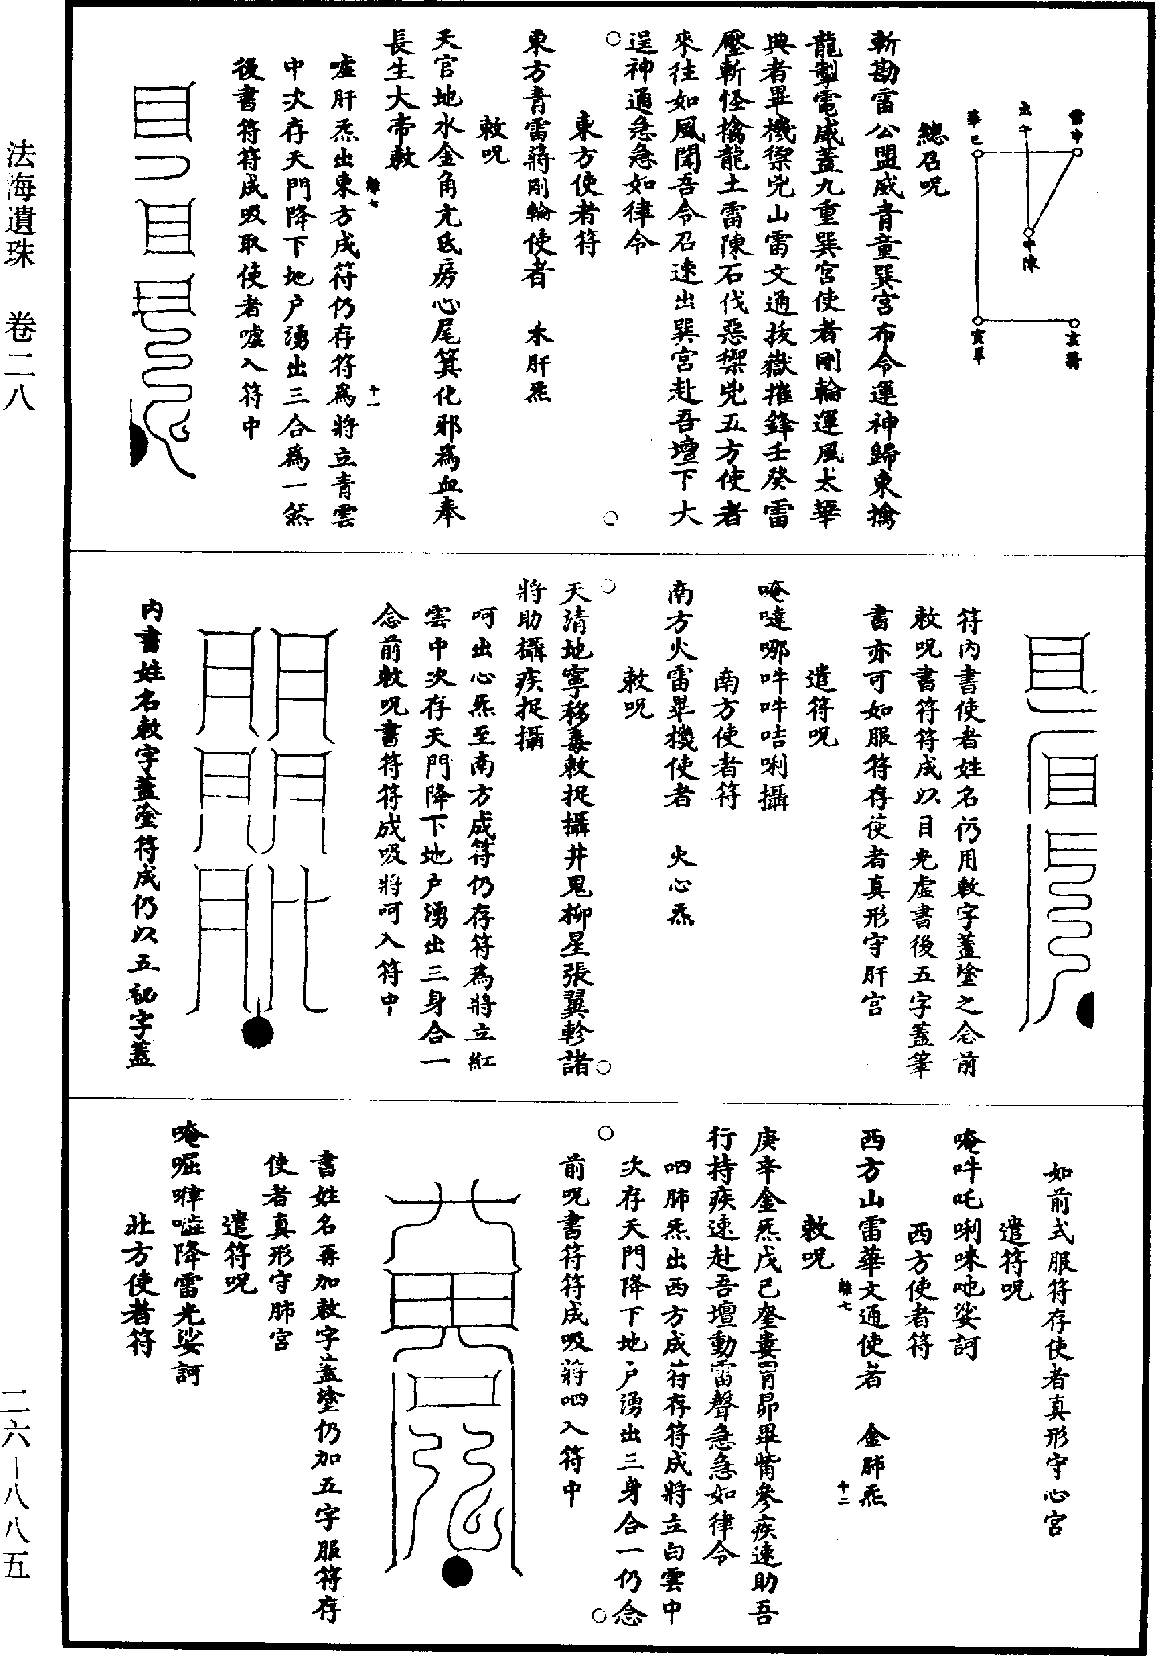 總召呪
斬勘雷公盟威青童巽宮布令運神歸東擒
龍掣電威蓋九重巽宮使者剛輪運風太華
典者畢機禦兇山雷文通拔嶽摧鋒壬癸雷
壓斬怪擒龍土雷陳石伐惡禦兇五方使者
來往如風聞吾令召速出巽宮赴吾壇下大
逞神通急急如律令
東方使者符
東方青雷蔣剛輪使者 木肝炁
敕呪
天官地水金角亢氐房心尾箕化邪為血奉
長生大帝敕
噓肝炁出東方成符仍存符為將立青雲
中次存天門降下地户湧出三合為一然
後書符符成吸取使者噓入符中
符內書使者姓名仍用敕字蓋塗之念前
敕呪書符符成以目光虛書後五字蓋筆
書亦可如服符存使者真形守肝宮
遣符呪
唵噠哪吽吽咭唎攝
南方使者符
南方火雷畢機使者 火心炁
敕呪
天清地寧移毒敕捉攝井鬼柳星張翼軫諸
將助攝疾捉攝
呵出心炁至南方成符仍存符為將立紅
雲中次存天門降下地户湧出三身合一
念前敕呪書符符成吸將呵入符中
內書姓名敕字蓋塗符成仍以五祕字蓋
如前式服符存使者真形守心宮
遣符呪
唵吽吒唎咪吔娑訶
西方使者符
西方山雷華文通使者 金肺炁
敕呪
庚辛金炁戊己奎婁胃昴畢觜參疾速助吾
行持疾速赴吾壇動雷聲急急如律令
呬肺炁出西方成符存符成將立白雲中
次存天門降下地户湧出三身合一仍念
前呪書符符成吸蔣呬入符中
書姓名再加敕字蓋塗仍加五字服符存
使者真形守肺宮
遣符呪
唵啒㗚嘧降雷光娑訶
北方使者符
法海遺珠 卷二八
二六—八八五